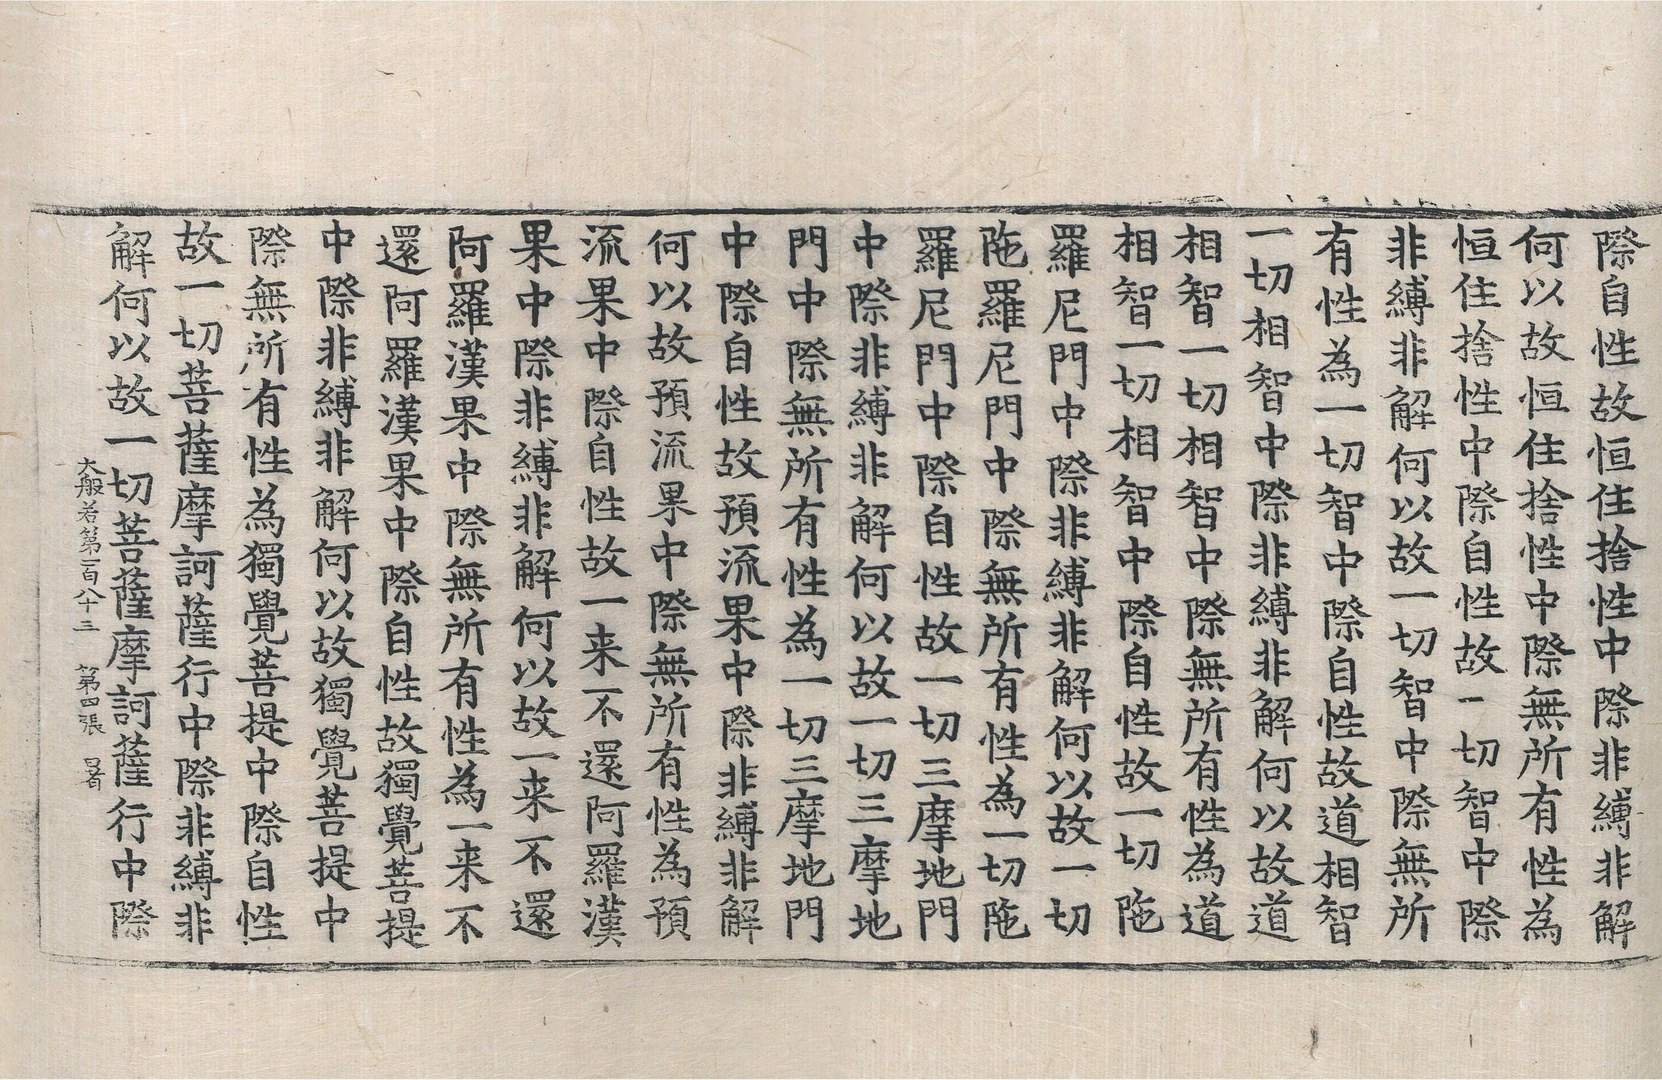 際自性故恒住捨性中際非縛非解
何以故恒住捨性中際無所有性為
恒住捨性中際自性故一切智中際
非縛非解何以故一切智中際無所
有性為一切智中際自性故道相智
一切相智中際非縛非解何以故道
相智一切相智中際無所有性為道
相智一切相智中際自性故一切陁
羅尼門中際非縛非解何以故一切
陁羅尼門中際無所有性為一切陁
羅尼門中際自性故一切三摩地門
中際非縛非解何以故一切三摩地
門中際無所有性為一切三摩地門
中際自性故預流果中際非縛非解
何以故預流果中際無所有性為預
流果中際自性故一来不還阿羅漢
果中際非縛非解何以故一来不還
阿羅漢果中際無所有性為一来不
還阿羅漢果中際自性故獨覺菩提
中際非縛非解何以故獨覺菩提中
際無所有性為獨覺菩提中際自性
故一切菩薩摩訶薩行中際非縛非
解何以故一切菩薩摩訶薩行中際
大般若第一百八十三 第四張